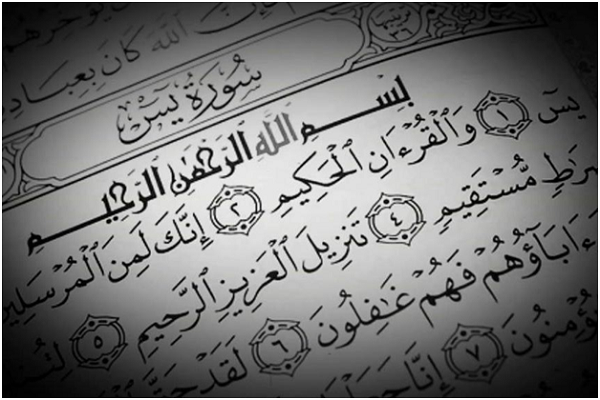 ٱللَّهَ كَانَ بِعِبَادِ
سُورَةُ يسٓ
بِسْمِ ٱللَّهِ ٱلرَّحْمَٰنِ ٱلرَّحِيمِ
يسٓ ١ وَٱلْقُرْءَانِ ٱلْحَكِيمِ ٢ إِنَّكَ لَمِنَ ٱلْمُرْسَلِينَ
صِرَٰطٍ مُّسْتَقِيمٍ ٤ تَنزِيلَ ٱلْعَزِيزِ ٱلرَّحِيمِ ٥
ءَابَآؤُهُمْ فَهُمْ غَٰفِلُونَ ٦ لَقَدْ حَقَّ
يُؤْمِنُونَ ٧ إِنَّا جَعَلْنَا